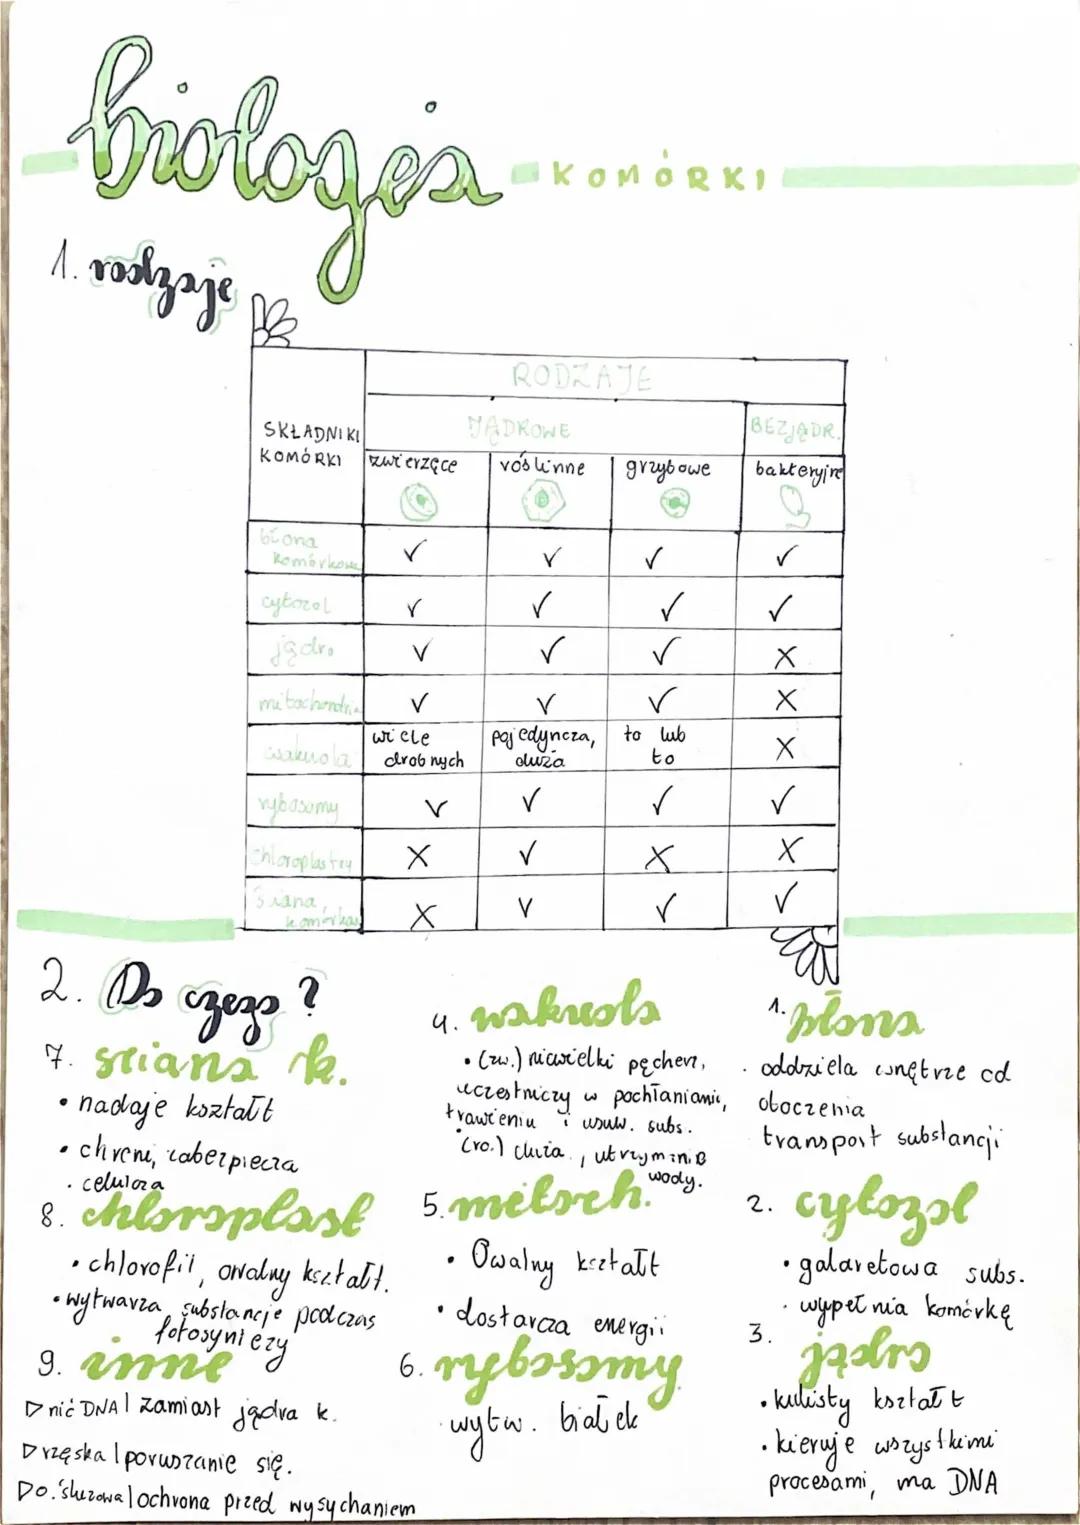 biologia
KOMÓRKI
1. rodzaje
RODZAJE
SKŁADNIKI KOMÓRKI
JĄDROWE
BEZJĄDR.
zwierzęce roślinne grzybowe bakteryjne
błona komórkowa ✓ ✓ ✓ ✓
cytozol ✓ ✓ ✓ ✓
jądro ✓ ✓ ✓ X
mitochondria ✓ ✓ ✓ X
wakuola wiele drobnych pojedyncza, duża to lub to X
rybosomy ✓ ✓ ✓ ✓
chloroplasty X ✓ X X
ściana komórkow X ✓ ✓ ✓
2. Do czego?
7. ściana k.
• nadaje kształt
• chroni, zabezpiecza
• celuloza
8. chloroplast
• chlorofil, owalny kształt.
• wytwarza substancje podczas
fotosyntezy
9. inne
▷ nić DNA | zamiast jądra k.
▷ rzęska | poruszanie się.
▷ o. śluzowa | ochrona przed wysychaniem
4. wakuola
• (zw.) niewielki pęcherz,
uczestniczy w pochłanianiu,
trawieniu i usuw. subs.
• (ro.) duża, utrzymanie
wody.
5. mitoch.
• Owalny kształt
• dostarcza energii
6. rybosomy
• wytw. białek
1. błona
• oddziela wnętrze od
otoczenia
transport substancji
2. cytozol
• galaretowa subs.
• wypełnia komórkę
3. jądro
• kulisty kształt
• kieruje wszystkimi
procesami, ma DNA